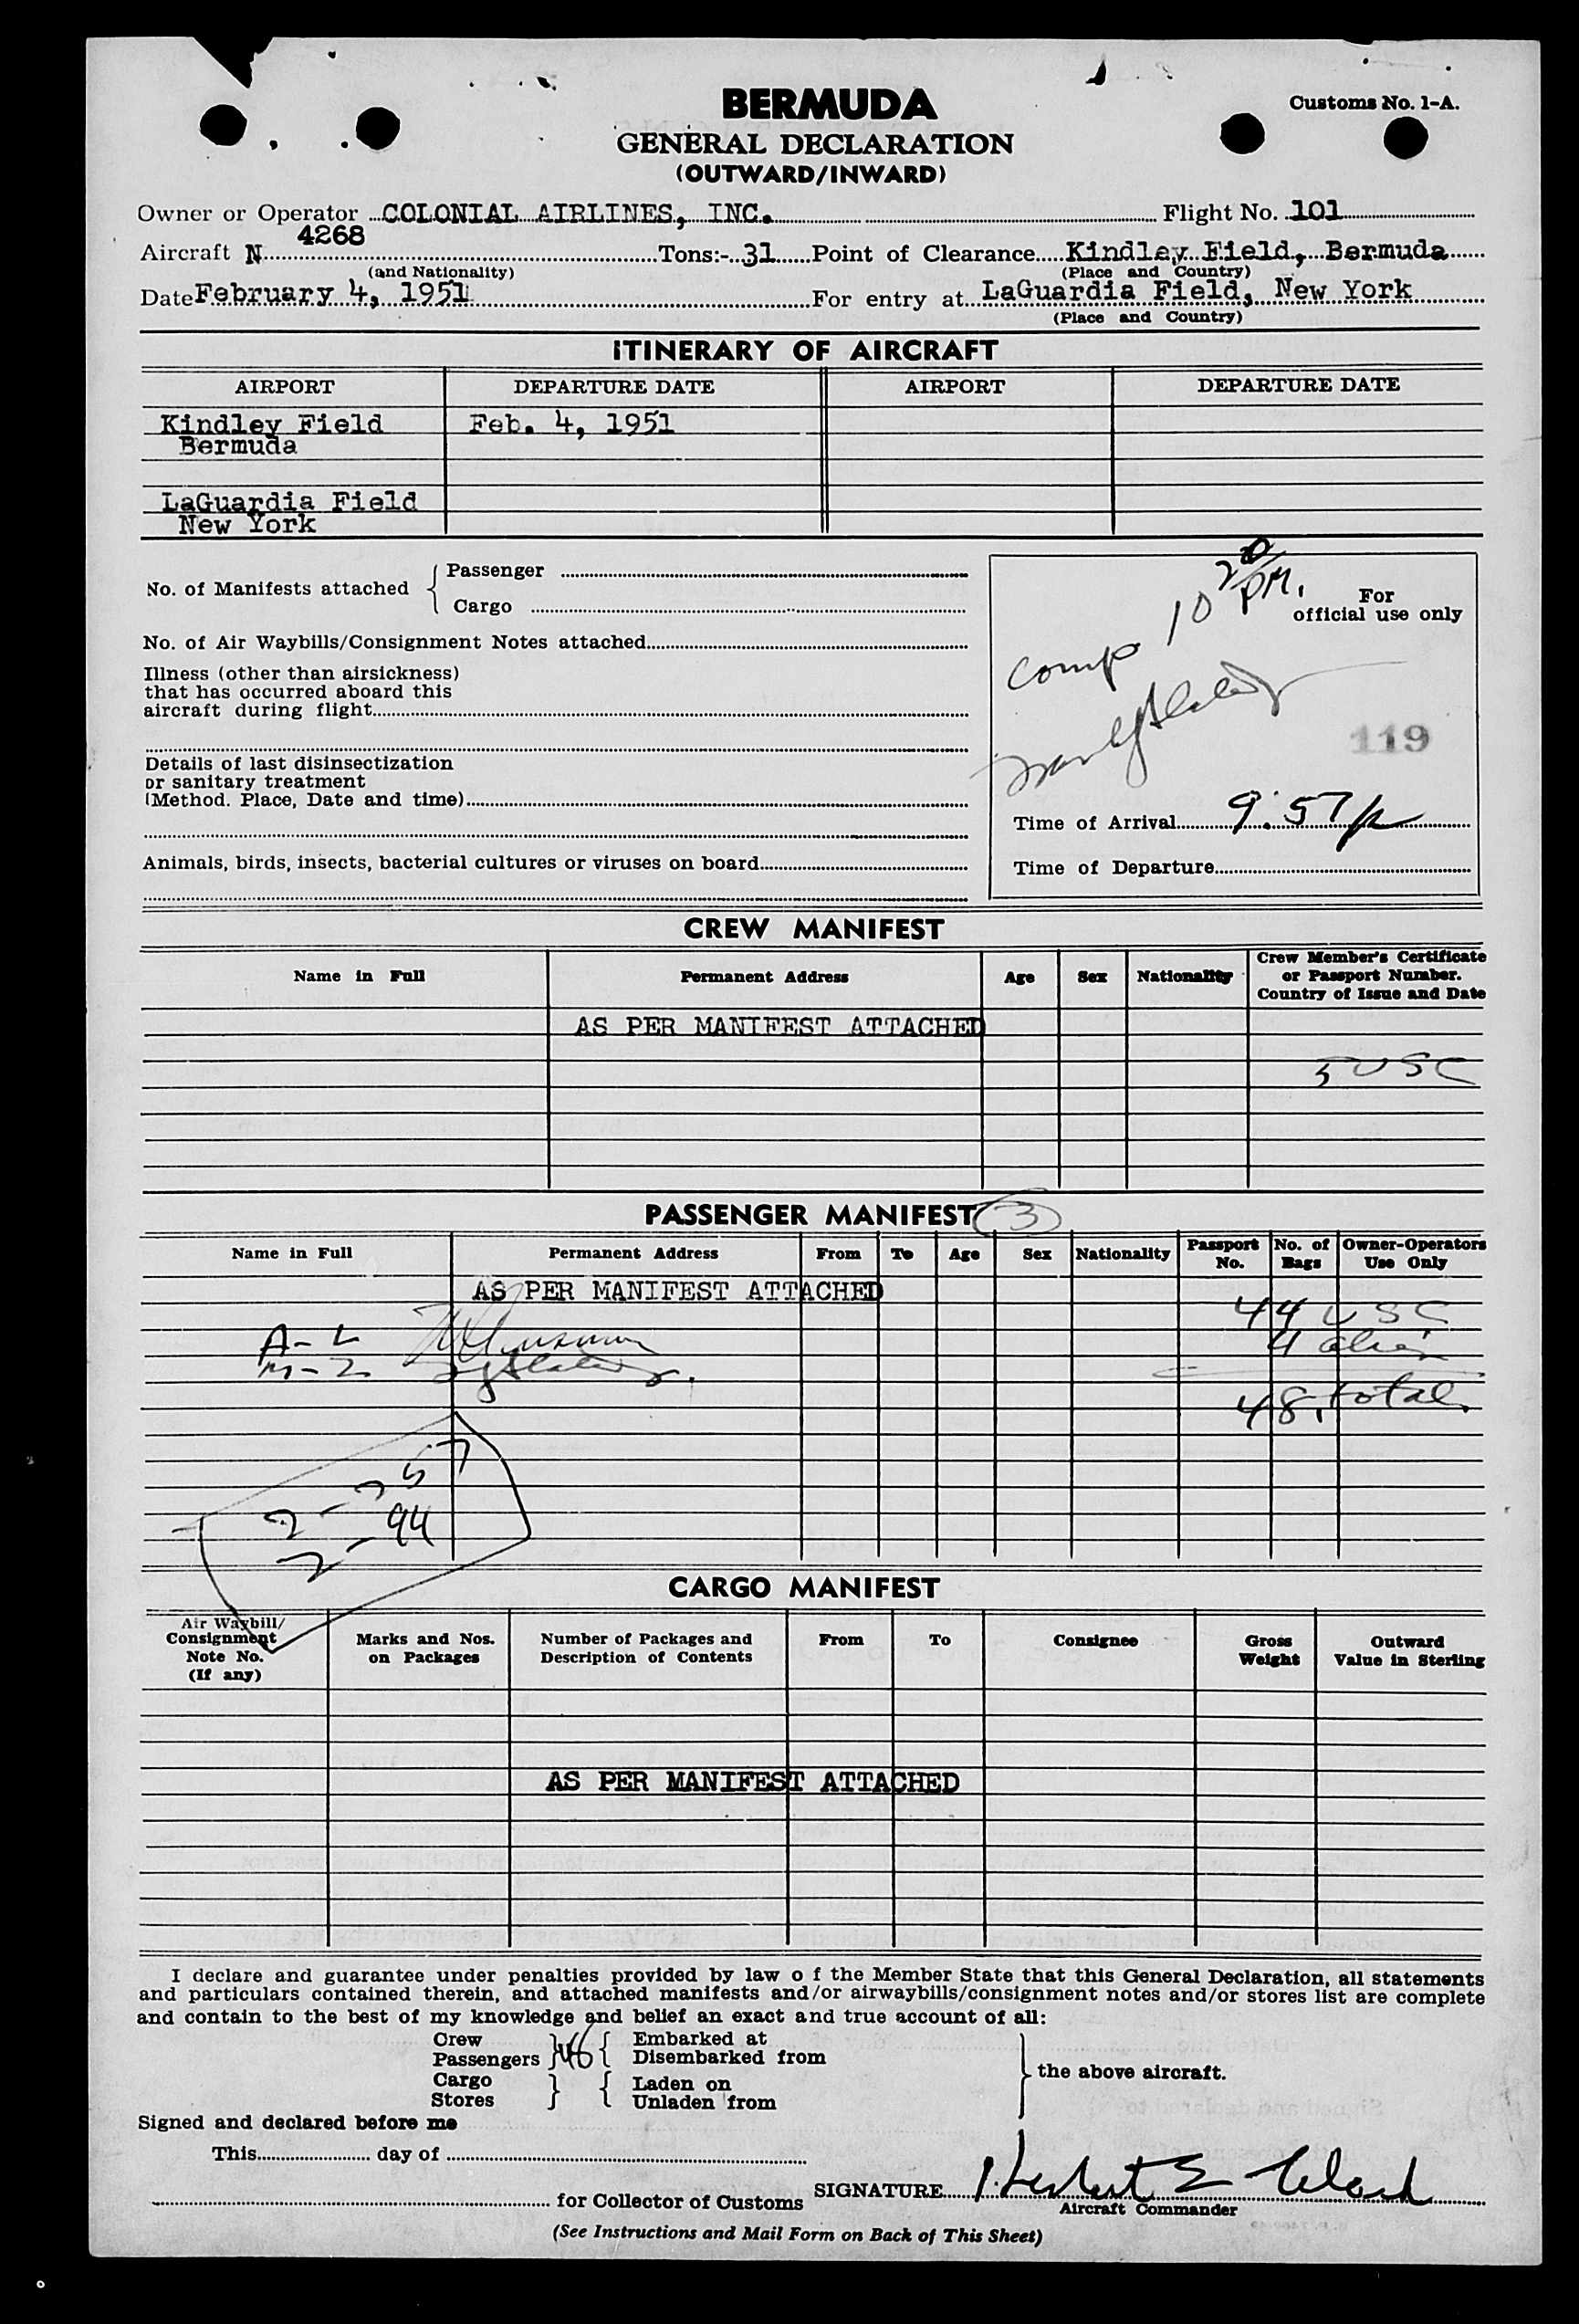 Customs No. 1-A.
BERMUDA
GENERAL DECLARATION
(OUTWARD/INWARD)
Owner or Operator COLONIAL AIRLINES, INC. Flight No. 101
Aircraft N 4268 Tons:- 31 Point of Clearance Kindley Field, Bermuda
(and Nationality) (Place and Country)
Date February 4, 1951 For entry at LaGuardia Field, New York
(Place and Country)
ITINERARY OF AIRCRAFT
AIRPORT DEPARTURE DATE AIRPORT DEPARTURE DATE
Kindley Field Feb. 4, 1951
Bermuda
LaGuardia Field
New York
No. of Manifests attached { Passenger
Cargo
No. of Air Waybills/Consignment Notes attached
Illness (other than airsickness)
that has occurred aboard this
aircraft during flight
Details of last disinsectization
or sanitary treatment
(Method. Place, Date and time)
Animals, birds, insects, bacterial cultures or viruses on board
For
official use only
comp 10 20 PM.
119
Time of Arrival 9:57 p
Time of Departure
CREW MANIFEST
Name in Full Permanent Address Age Sex Nationality Crew Member's Certificate
or Passport Number.
Country of Issue and Date
AS PER MANIFEST ATTACHED
5 USC
PASSENGER MANIFEST 3
Name in Full Permanent Address From To Age Sex Nationality Passport No. No. of Bags Owner-Operators Use Only
AS PER MANIFEST ATTACHED
44 USC
A-L 4 alien
M-Z
48 total.
2 - 757
2 - 94
CARGO MANIFEST
Air Waybill/
Consignment
Note No.
(If any)
Marks and Nos.
on Packages
Number of Packages and
Description of Contents
From To Consignee
Gross
Weight
Outward
Value in Sterling
AS PER MANIFEST ATTACHED
I declare and guarantee under penalties provided by law o f the Member State that this General Declaration, all statements
and particulars contained therein, and attached manifests and/or airwaybills/consignment notes and/or stores list are complete
and contain to the best of my knowledge and belief an exact and true account of all:
Crew Embarked at
Passengers } { Disembarked from
Cargo Laden on
Stores } { Unladen from
} the above aircraft.
Signed and declared before me
This day of
for Collector of Customs SIGNATURE Herbert E
Aircraft Commander
(See Instructions and Mail Form on Back of This Sheet)